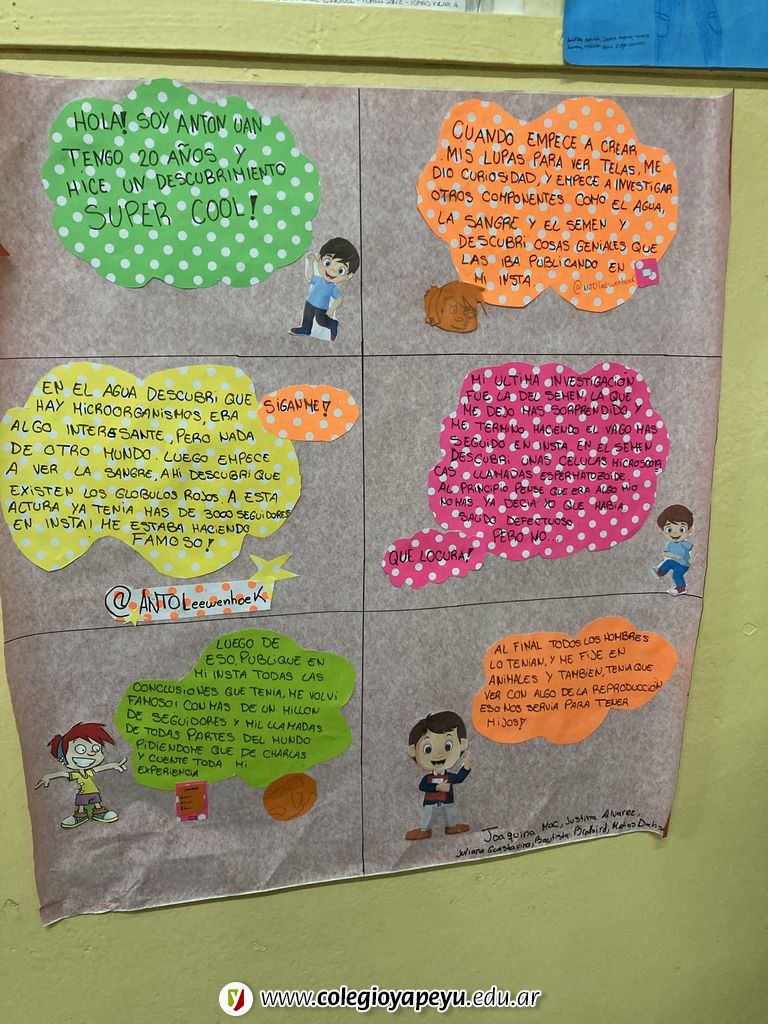 HOLA! SOY ANTON VAN
TENGO 20 AÑOS Y
HICE UN DESCUBRIMIENTO
SUPER COOL!
CUANDO EMPECE A CREAR
MIS LUPAS PARA VER TELAS, ME
DIO CURIOSIDAD, Y EMPECE A INVESTIGAR
OTROS COMPONENTES COMO EL AGUA,
LA SANGRE Y EL SEMEN Y
DESCUBRI COSAS GENIALES QUE
LAS IBA PUBLICANDO EN
MI INSTA.
@ANTOLeewenhoeK
EN EL AGUA DESCUBRI QUE
HAY MICROORGANISMOS, ERA
ALGO INTERESANTE, PERO NADA
DE OTRO MUNDO. LUEGO EMPECE
A VER LA SANGRE, AHI DESCUBRI QUE
EXISTEN LOS GLOBULOS ROJOS. A ESTA
ALTURA YA TENIA MAS DE 3000 SEGUIDORES
EN INSTA! ME ESTABA HACIENDO
FAMOSO!
SIGANME!
@ANTOLeewenhoeK
MI ULTIMA INVESTIGACIÓN
FUE LA DEL SEMEN, LA QUE
ME DEJO MAS SORPRENDIDO, Y
ME TERMINO HACIENDO EL VAGO MAS
SEGUIDO EN INSTA. EN EL SEMEN
DESCUBRI UNAS CELULAS MICROSCOPI
CAS LLAMADAS ESPERMATOZOIDE.
AL PRINCIPIO PENSE QUE ERA ALGO MIO
NOMAS YA DECIA YO QUE HABIA
SALIDO DEFECTUOSO
PERO NO...
QUE LOCURA!
LUEGO DE
ESO, PUBLIQUE EN
MI INSTA TODAS LAS
CONCLUSIONES QUE TENIA, ME VOLVI
FAMOSO! CON MAS DE UN MILLON
DE SEGUIDORES Y MIL LLAMADAS
DE TODAS PARTES DEL MUNDO
PIDIENDOME QUE DE CHARLAS
Y CUENTE TODA MI
EXPERIENCIA
AL FINAL TODOS LOS HOMBRES
LO TENIAN, Y ME FIJE EN
ANIMALES Y TAMBIEN, TENIA QUE
VER CON ALGO DE LA REPRODUCCION
ESO NOS SERVIA PARA TENER
HIJOS!
Joaquina Mac, Justina Alvarez,
Juliana Guastavino, Bautista
www.colegioyapeyu.edu.ar